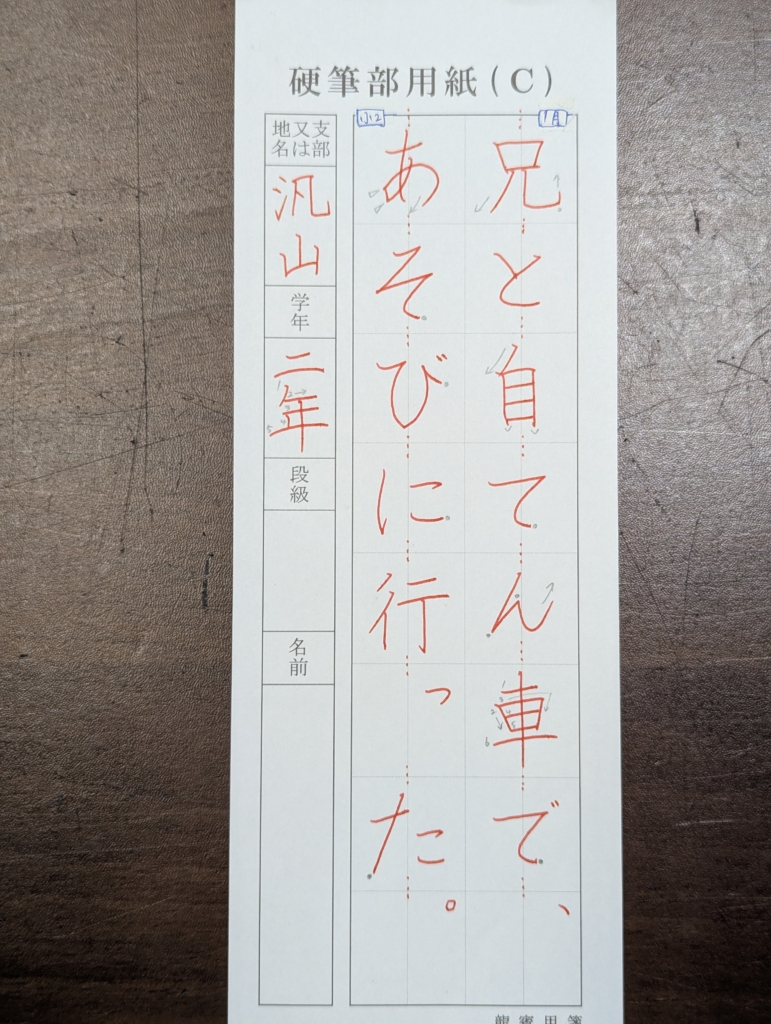 硬筆部用紙(C)
1月
兄と自てん車で、
小2
あそびに行った。
地名又は支部
汎山
学年
二年
段級
名前